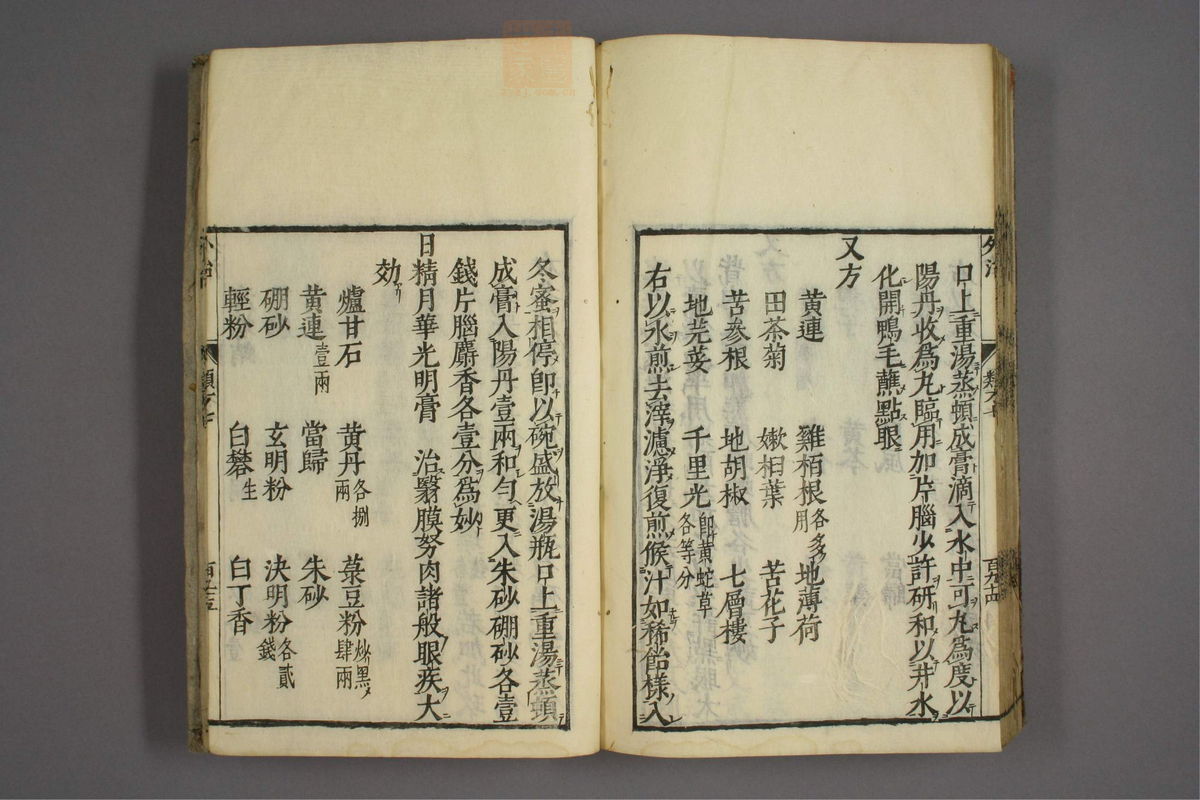 口上重湯蒸頓成膏滴入水中可丸爲度以
陽丹收爲丸臨用加片腦少許研和以井水
化開鴨毛蘸點眼
又方
黄連 雞栢根各多用 地薄荷
田茶菊 嫰桕葉 苦花子
苦参根 地胡椒 七層樓
地芫荽 千里光即黄蛇草各等分
右以水煎去滓濾淨復煎候汁如稀飴様入
冬蜜相停即以碗盛放湯瓶口上重湯蒸頓
成膏入陽丹壹兩和匀更入朱砂硼砂各壹
錢片腦麝香各壹分爲妙
日精月華光明膏 治翳膜努肉諸般眼疾大
効
爐甘石 黄丹各捌兩 菉豆粉炒黒肆兩
黄連壹兩 當歸 朱砂
硼砂 玄明粉 決明粉各貳錢
輕粉 白礬生 白丁香
外治
百九十四
外治
百九十五